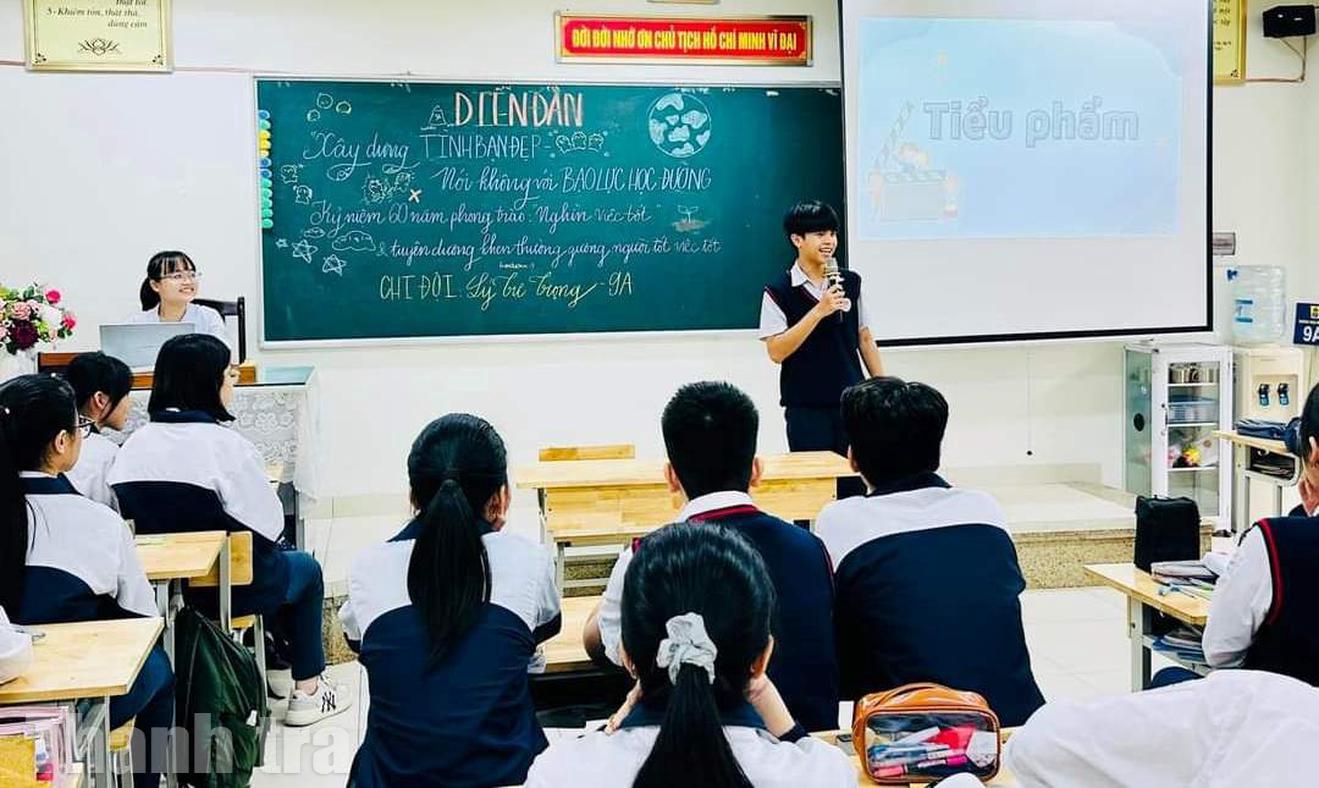 5 - Khiêm tốn, thật thà,
dũng cảm
ĐỜI ĐỜI NHỚ ƠN CHỦ TỊCH HỒ CHÍ MINH VĨ ĐẠI
DIỄN ĐÀN
"Xây dựng TÌNH BẠN ĐẸP -
Nói không với BẠO LỰC HỌC ĐƯỜNG
Kỷ niệm 60 năm phong trào "Nghìn việc tốt"
& tuyên dương khen thưởng gương người tốt việc tốt
CHI ĐỘI: Lý Tự Trọng - 9A
Tiểu phẩm
9A
Thanh tra